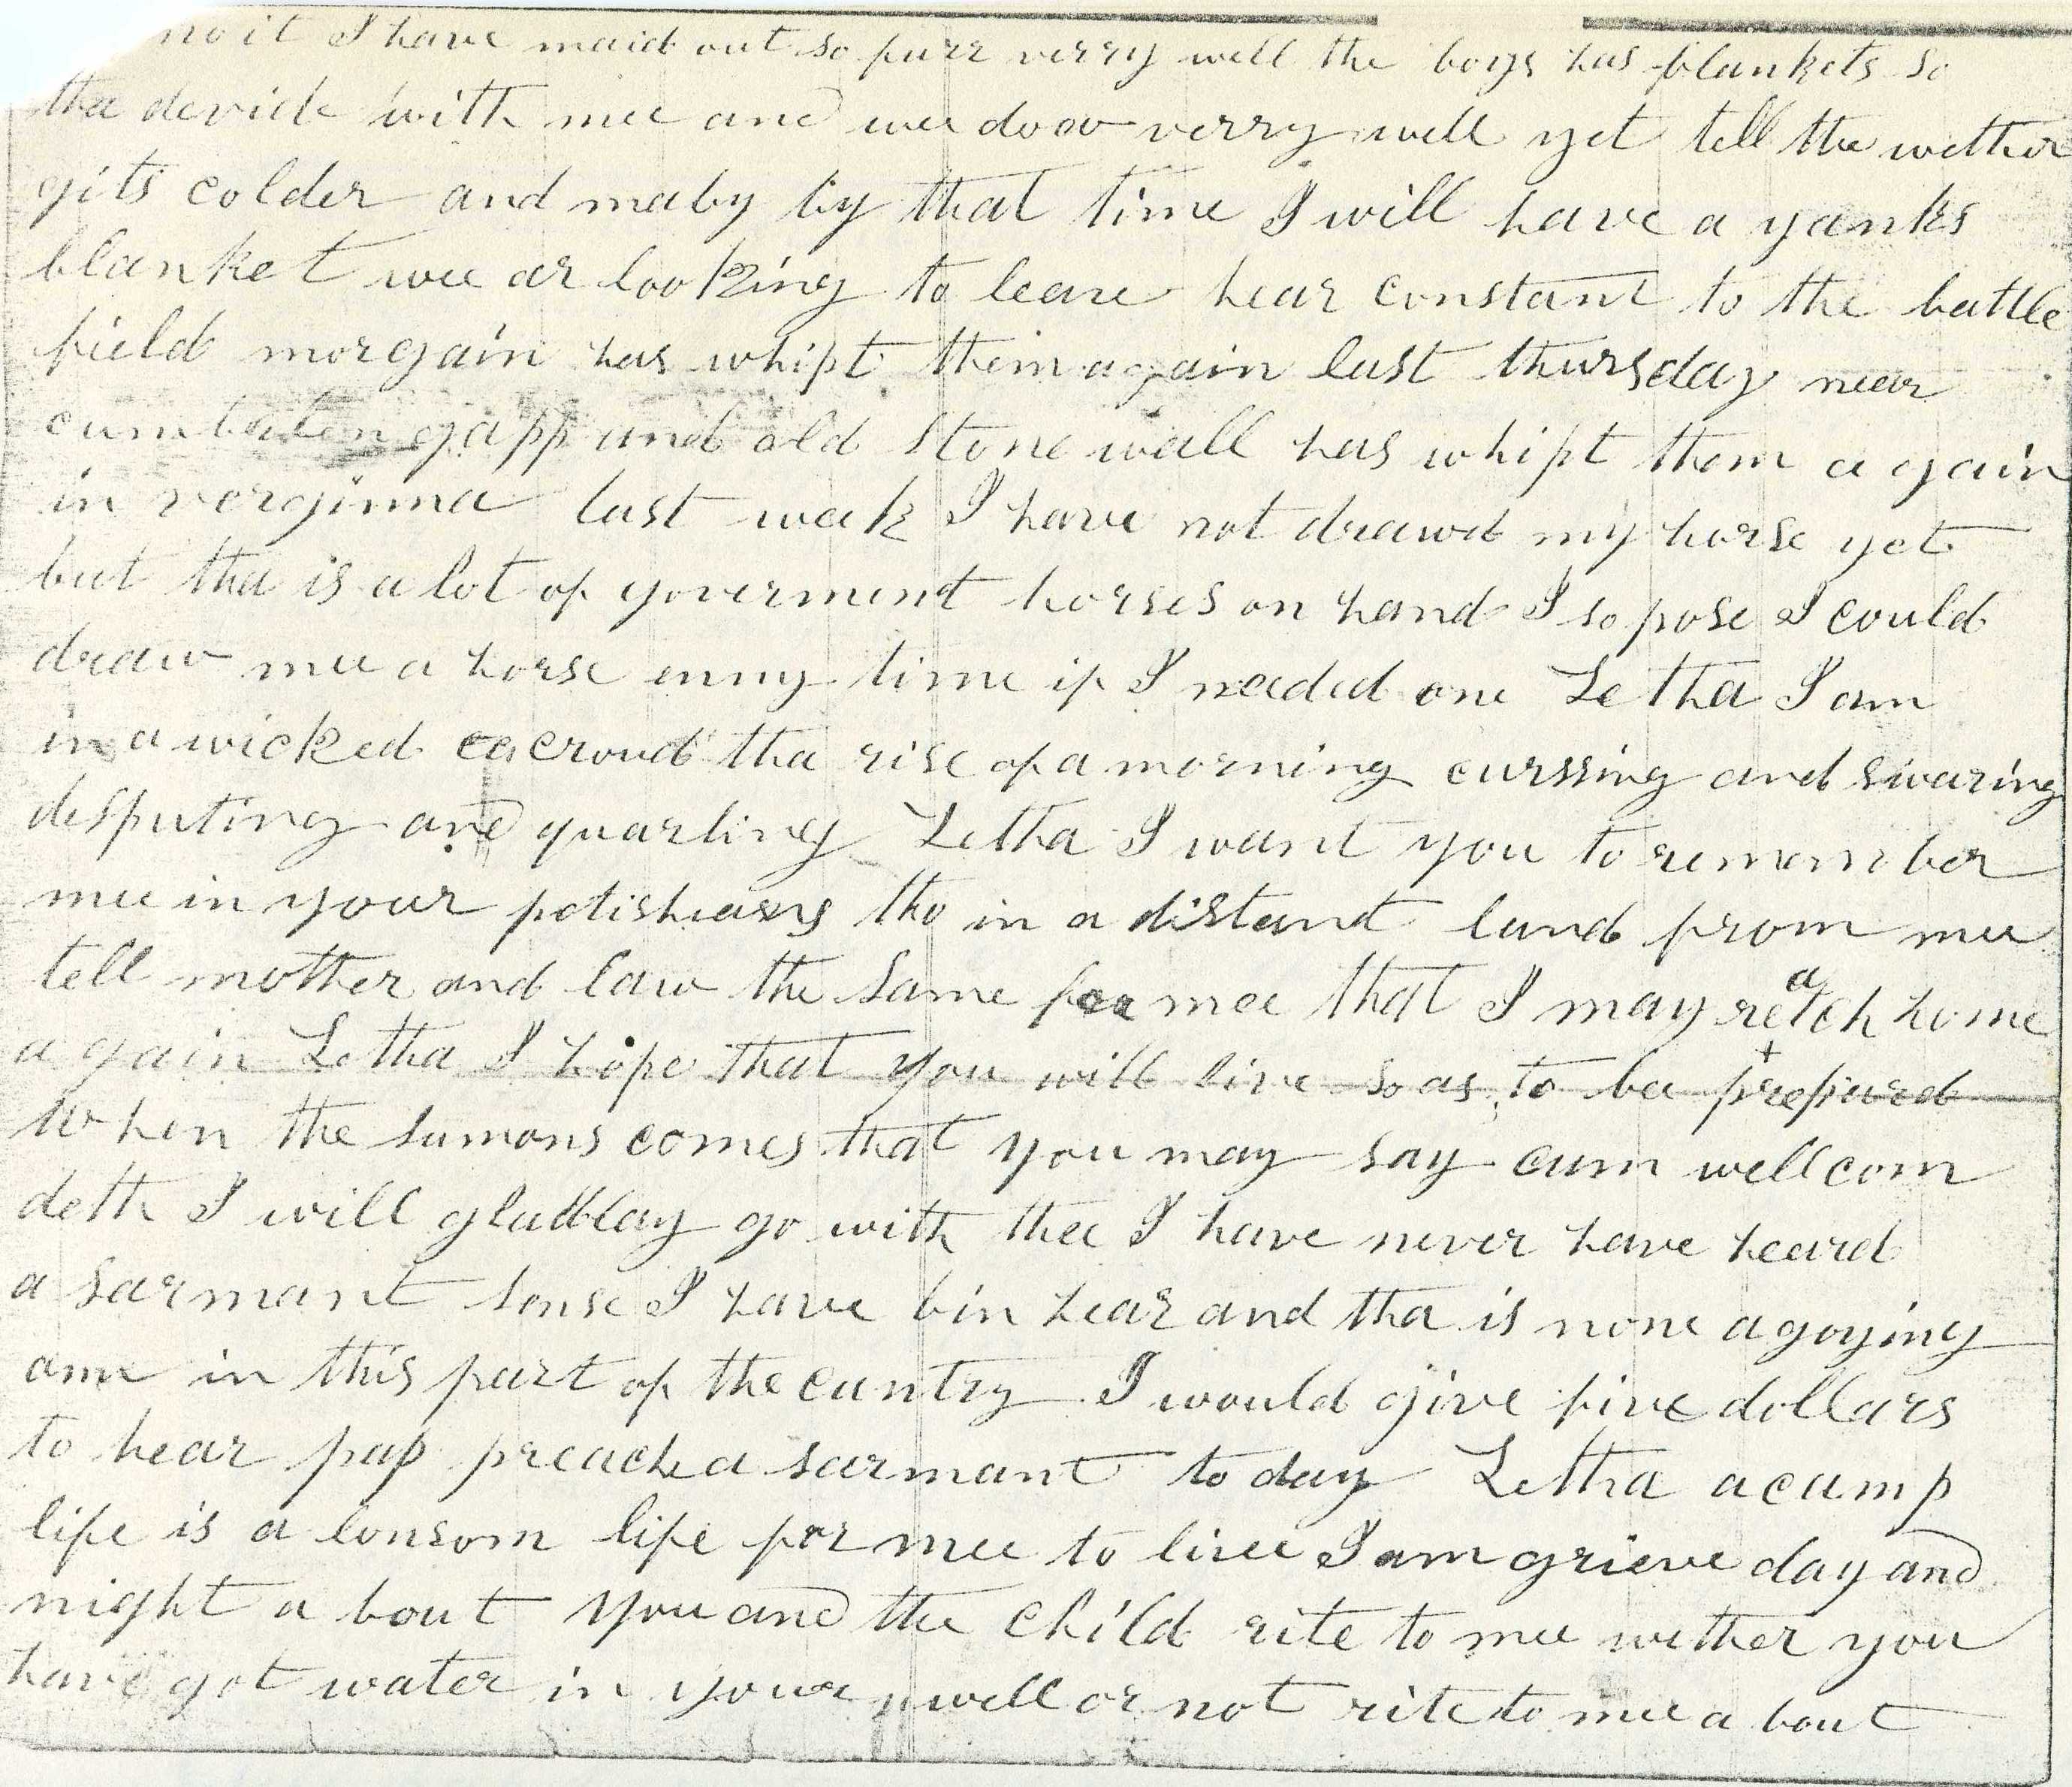 no it I have maid out so furr verry well the boys has blankets so
tha devide with mee and wee doo verry well yet tell the wether
gits colder and maby by that time I will have a yanks
blanket wee ar looking to leave hear constant to the battle
field morgain has whipt them again last thursday near
cumberlen gapp and old stone wall has whipt them a gain
in verginna last weak I have not drawd my horse yet
but tha is a lot of goverment horses on hand I so pose I could
draw mee a horse enny time if I needed one Letha I am
in a wicked crowd tha rise of a morning curssing and swaring
desputing and quarling Letha I want you to remember
mee in your petisheons tho in a distant land from mee
tell mother and law the same for mee that I may reatch home
a gain Letha I hope that you will live so as to be prepared
when the sumons comes that you may say cum wellcom
deth I will gladlay go with thee I have never have heard
a sarmant sense I have bin hear and tha is none a goying
one in this part of the cuntry I would give five dollars
to hear pap preach a sarmant to day Letha a camp
life is a lonsom life for mee to live I am grieve day and
night a bout you and the child rite to mee wether you
have got water in your well or not rite to mee a bout